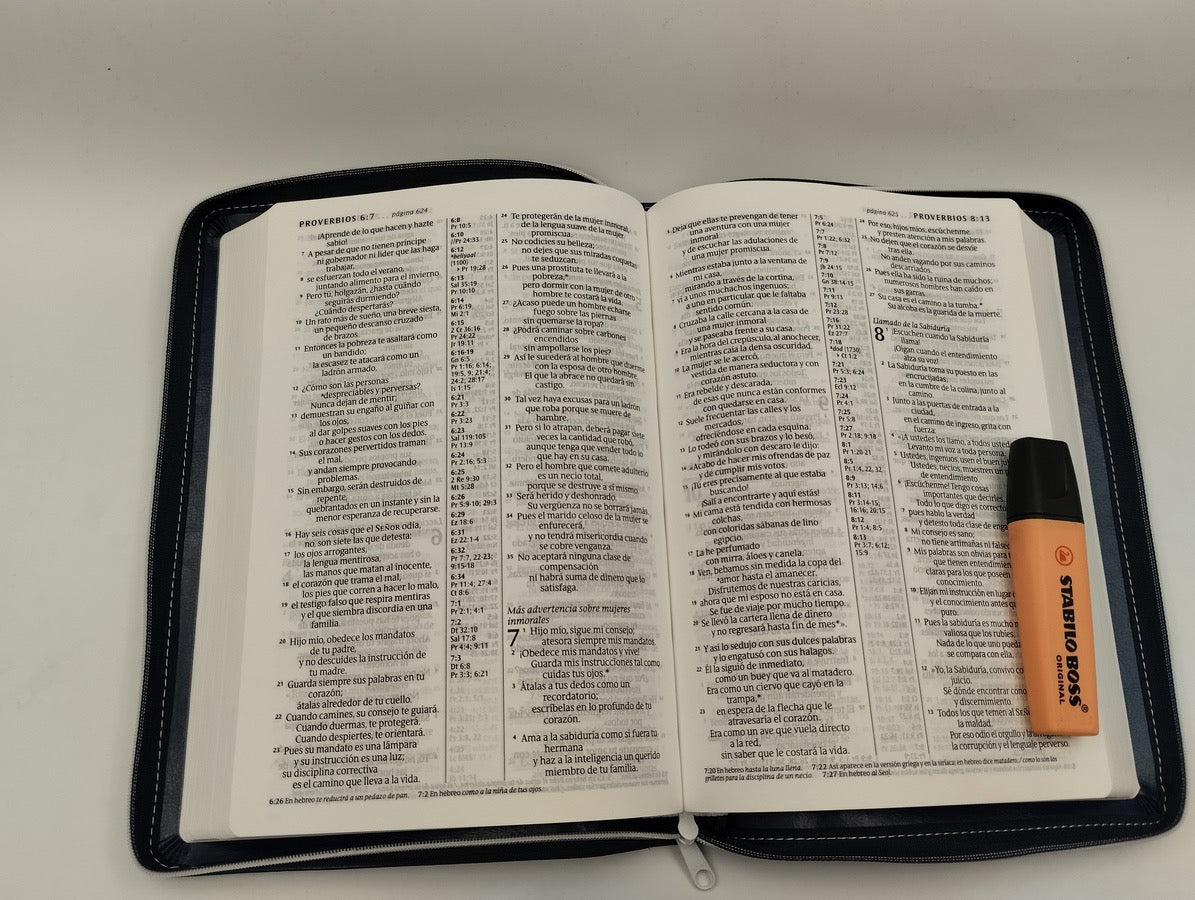 PROVERBIOS 6:7 . . . página 624
¡Aprende de lo que hacen y hazte
sabio!
7 A pesar de que no tienen príncipe
ni gobernador ni líder que las haga
trabajar,
8 se esfuerzan todo el verano,
juntando alimento para el invierno.
9 Pero tú, holgazán, ¿hasta cuándo
seguirás durmiendo?
¿Cuándo despertarás?
10 Un rato más de sueño, una breve siesta,
un pequeño descanso cruzado
de brazos.
11 Entonces la pobreza te asaltará como
un bandido;
la escasez te atacará como un
ladrón armado.
12 ¿Cómo son las personas
*despreciables y perversas?
Nunca dejan de mentir;
13 demuestran su engaño al guiñar con
los ojos,
al dar golpes suaves con los pies
o hacer gestos con los dedos.
14 Sus corazones pervertidos traman
el mal,
y andan siempre provocando
problemas.
15 Sin embargo, serán destruidos de
repente,
quebrantados en un instante y sin la
menor esperanza de recuperarse.
16 Hay seis cosas que el SEÑOR odia,
no, son siete las que detesta:
17 los ojos arrogantes,
la lengua mentirosa,
las manos que matan al inocente,
18 el corazón que trama el mal,
los pies que corren a hacer lo malo,
19 el testigo falso que respira mentiras
y el que siembra discordia en una
familia.
20 Hijo mío, obedece los mandatos
de tu padre,
y no descuides la instrucción de
tu madre.
21 Guarda siempre sus palabras en tu
corazón;
átalas alrededor de tu cuello.
22 Cuando camines, su consejo te guiará.
Cuando duermas, te protegerá.
Cuando despiertes, te orientará.
23 Pues su mandato es una lámpara
y su instrucción es una luz;
su disciplina correctiva
es el camino que lleva a la vida.
6:8
Pr 10:5
6:10
//Pr 24:33
6:12
*beliyaal
(1100)
Pr 19:28
6:13
Sal 35:19
Pr 10:10
6:14
Pr 6:19
Mi 2:1
6:15
2 Cr 36:16
Pr 24:22
Jr 19:11
6:16-19
Gn 6:5
Pr 1:16; 6:14;
19:5, 9; 21:4;
24:2; 28:17
Is 1:15
6:21
Pr 3:3
6:22
Pr 3:23
6:23
Sal 119:105
Pr 13:9
6:24
Pr 2:16; 5:3
6:25
2 Re 9:30
Mt 5:28
6:26
Pr 5:9-10; 29:3
6:29
Ez 18:6
6:31
Ez 22:1-4
6:32
Pr 7:7, 22-23;
9:15-18
6:34
Pr 11:4; 27:4
Ct 8:6
7:1
Pr 2:1; 4:1
7:2
Dt 32:10
Sal 17:8
Pr 4:4; 9:11
7:3
Dt 6:8
Pr 3:3; 6:21
24 Te protegerán de la mujer inmoral,
de la lengua suave de la mujer
promiscua.
25 No codicies su belleza;
no dejes que sus miradas coquetas
te seduzcan.
26 Pues una prostituta te llevará a la
pobreza,*
pero dormir con la mujer de otro
hombre te costará la vida.
27 ¿Acaso puede un hombre echarse
fuego sobre las piernas
sin quemarse la ropa?
28 ¿Podrá caminar sobre carbones
encendidos
sin ampollarse los pies?
29 Así le sucederá al hombre que duerme
con la esposa de otro hombre.
El que la abrace no quedará sin
castigo.
30 Tal vez haya excusas para un ladrón
que roba porque se muere de
hambre.
31 Pero si lo atrapan, deberá pagar siete
veces la cantidad que robó,
aunque tenga que vender todo lo
que hay en su casa.
32 Pero el hombre que comete adulterio
es un necio total,
porque se destruye a sí mismo.
33 Será herido y deshonrado.
Su vergüenza no se borrará jamás.
34 Pues el marido celoso de la mujer se
enfurecerá,
y no tendrá misericordia cuando
se cobre venganza.
35 No aceptará ninguna clase de
compensación
ni habrá suma de dinero que lo
satisfaga.
Más advertencia sobre mujeres
inmorales
7 1 Hijo mío, sigue mi consejo;
atesora siempre mis mandatos.
2 ¡Obedece mis mandatos y vive!
Guarda mis instrucciones tal como
cuidas tus ojos.*
3 Átalas a tus dedos como un
recordatorio;
escríbelas en lo profundo de tu
corazón.
4 Ama a la sabiduría como si fuera tu
hermana
y haz a la inteligencia un querido
miembro de tu familia.
6:26 En hebreo te reducirá a un pedazo de pan. 7:2 En hebreo como a la niña de tus ojos.
página 625 . . . PROVERBIOS 8:13
5 Deja que ellas te prevengan de tener
una aventura con una mujer
inmoral
y de escuchar las adulaciones de
una mujer promiscua.
6 Mientras estaba junto a la ventana de
mi casa,
mirando a través de la cortina,
7 vi a unos muchachos ingenuos;
a uno en particular que le faltaba
sentido común.
8 Cruzaba la calle cercana a la casa de
una mujer inmoral
y se paseaba frente a su casa.
9 Era la hora del crepúsculo, al anochecer,
mientras caía la densa oscuridad.
10 La mujer se le acercó,
vestida de manera seductora y con
corazón astuto.
11 Era rebelde y descarada,
de esas que nunca están conformes
con quedarse en casa.
12 Suele frecuentar las calles y los
mercados,
ofreciéndose en cada esquina.
13 Lo rodeó con sus brazos y lo besó,
y mirándolo con descaro le dijo:
14 «Acabo de hacer mis ofrendas de paz
y de cumplir mis votos.
15 ¡Tú eres precisamente al que estaba
buscando!
¡Salí a encontrarte y aquí estás!
16 Mi cama está tendida con hermosas
colchas,
con coloridas sábanas de lino
egipcio.
17 La he perfumado
con mirra, áloes y canela.
18 Ven, bebamos sin medida la copa del
*amor hasta el amanecer.
Disfrutemos de nuestras caricias,
19 ahora que mi esposo no está en casa.
Se fue de viaje por mucho tiempo.
20 Se llevó la cartera llena de dinero
y no regresará hasta fin de mes*».
21 Y así lo sedujo con sus dulces palabras
y lo engatusó con sus halagos.
22 Él la siguió de inmediato,
como un buey que va al matadero.
Era como un ciervo que cayó en la
trampa,*
23 en espera de la flecha que le
atravesaría el corazón.
Era como un ave que vuela directo
a la red,
sin saber que le costará la vida.
7:5
Pr 6:24
7:7
Pr 1:22; 6:32
7:8
Pr 7:12
7:9
Jb 24:15
7:10
Gn 38:14-15
7:11
Pr 9:13
7:12
Pr 23:28
7:16
Pr 31:22
Ez 27:7
7:18
*dod (1730)
Ct 1:2
7:21
Pr 5:3; 6:24
7:23
Ecl 9:12
7:24
Pr 4:1
7:25
Pr 5:8
7:27
Pr 2:18; 9:18
8:1
Pr 1:20-21
8:5
Pr 1:4, 22, 32
8:9
Pr 3:13; 14:6
8:11
Pr 3:14-15;
16:16; 20:15
8:12
Pr 1:4; 8:5
8:13
Pr 3:7; 6:12;
15:9
24 Por eso, hijos míos, escúchenme
y presten atención a mis palabras.
25 No dejen que el corazón se desvíe
tras ella.
No anden vagando por sus caminos
descarriados.
26 Pues ella ha sido la ruina de muchos;
numerosos hombres han caído en
sus garras.
27 Su casa es el camino a la tumba.*
Su alcoba es la guarida de la muerte.
Llamado de la Sabiduría
8 1 ¡Escuchen cuando la Sabiduría
llama!
¡Oigan cuando el entendimiento
alza su voz!
2 La Sabiduría toma su puesto en las
encrucijadas,
en la cumbre de la colina, junto al
camino.
3 Junto a las puertas de entrada a la
ciudad,
en el camino de ingreso, grita con
fuerza:
4 «¡A ustedes los llamo, a todos ustedes
Levanto mi voz a toda persona.
5 Ustedes, ingenuos, usen el buen
Ustedes, necios, muestren un
de entendimiento.
6 ¡Escúchenme! Tengo cosas
importantes que decirles.
Todo lo que digo es correcto
7 pues hablo la verdad
y detesto toda clase de
8 Mi consejo es sano;
no tiene artimañas ni
9 Mis palabras son obvias para
que tienen entendimiento
claras para los que poseen
conocimiento.
10 Elijan mi instrucción en lugar
y el conocimiento antes
puro.
11 Pues la sabiduría es mucho
valiosa que los rubíes.
Nada de lo que uno pueda
se compara con ella.
12 »Yo, la Sabiduría, convivo
juicio.
Sé dónde encontrar
y discernimiento.
13 Todos los que temen al
la maldad.
Por eso odio el orgullo y la
la corrupción y el lenguaje perverso.
7:20 En hebreo hasta la luna llena. 7:22 Así aparece en la versión griega y en la siríaca; en hebreo dice matadero, / como lo son los
grilletes para la disciplina de un necio. 7:27 En hebreo al Seol.
STABILO BOSS®
ORIGINAL